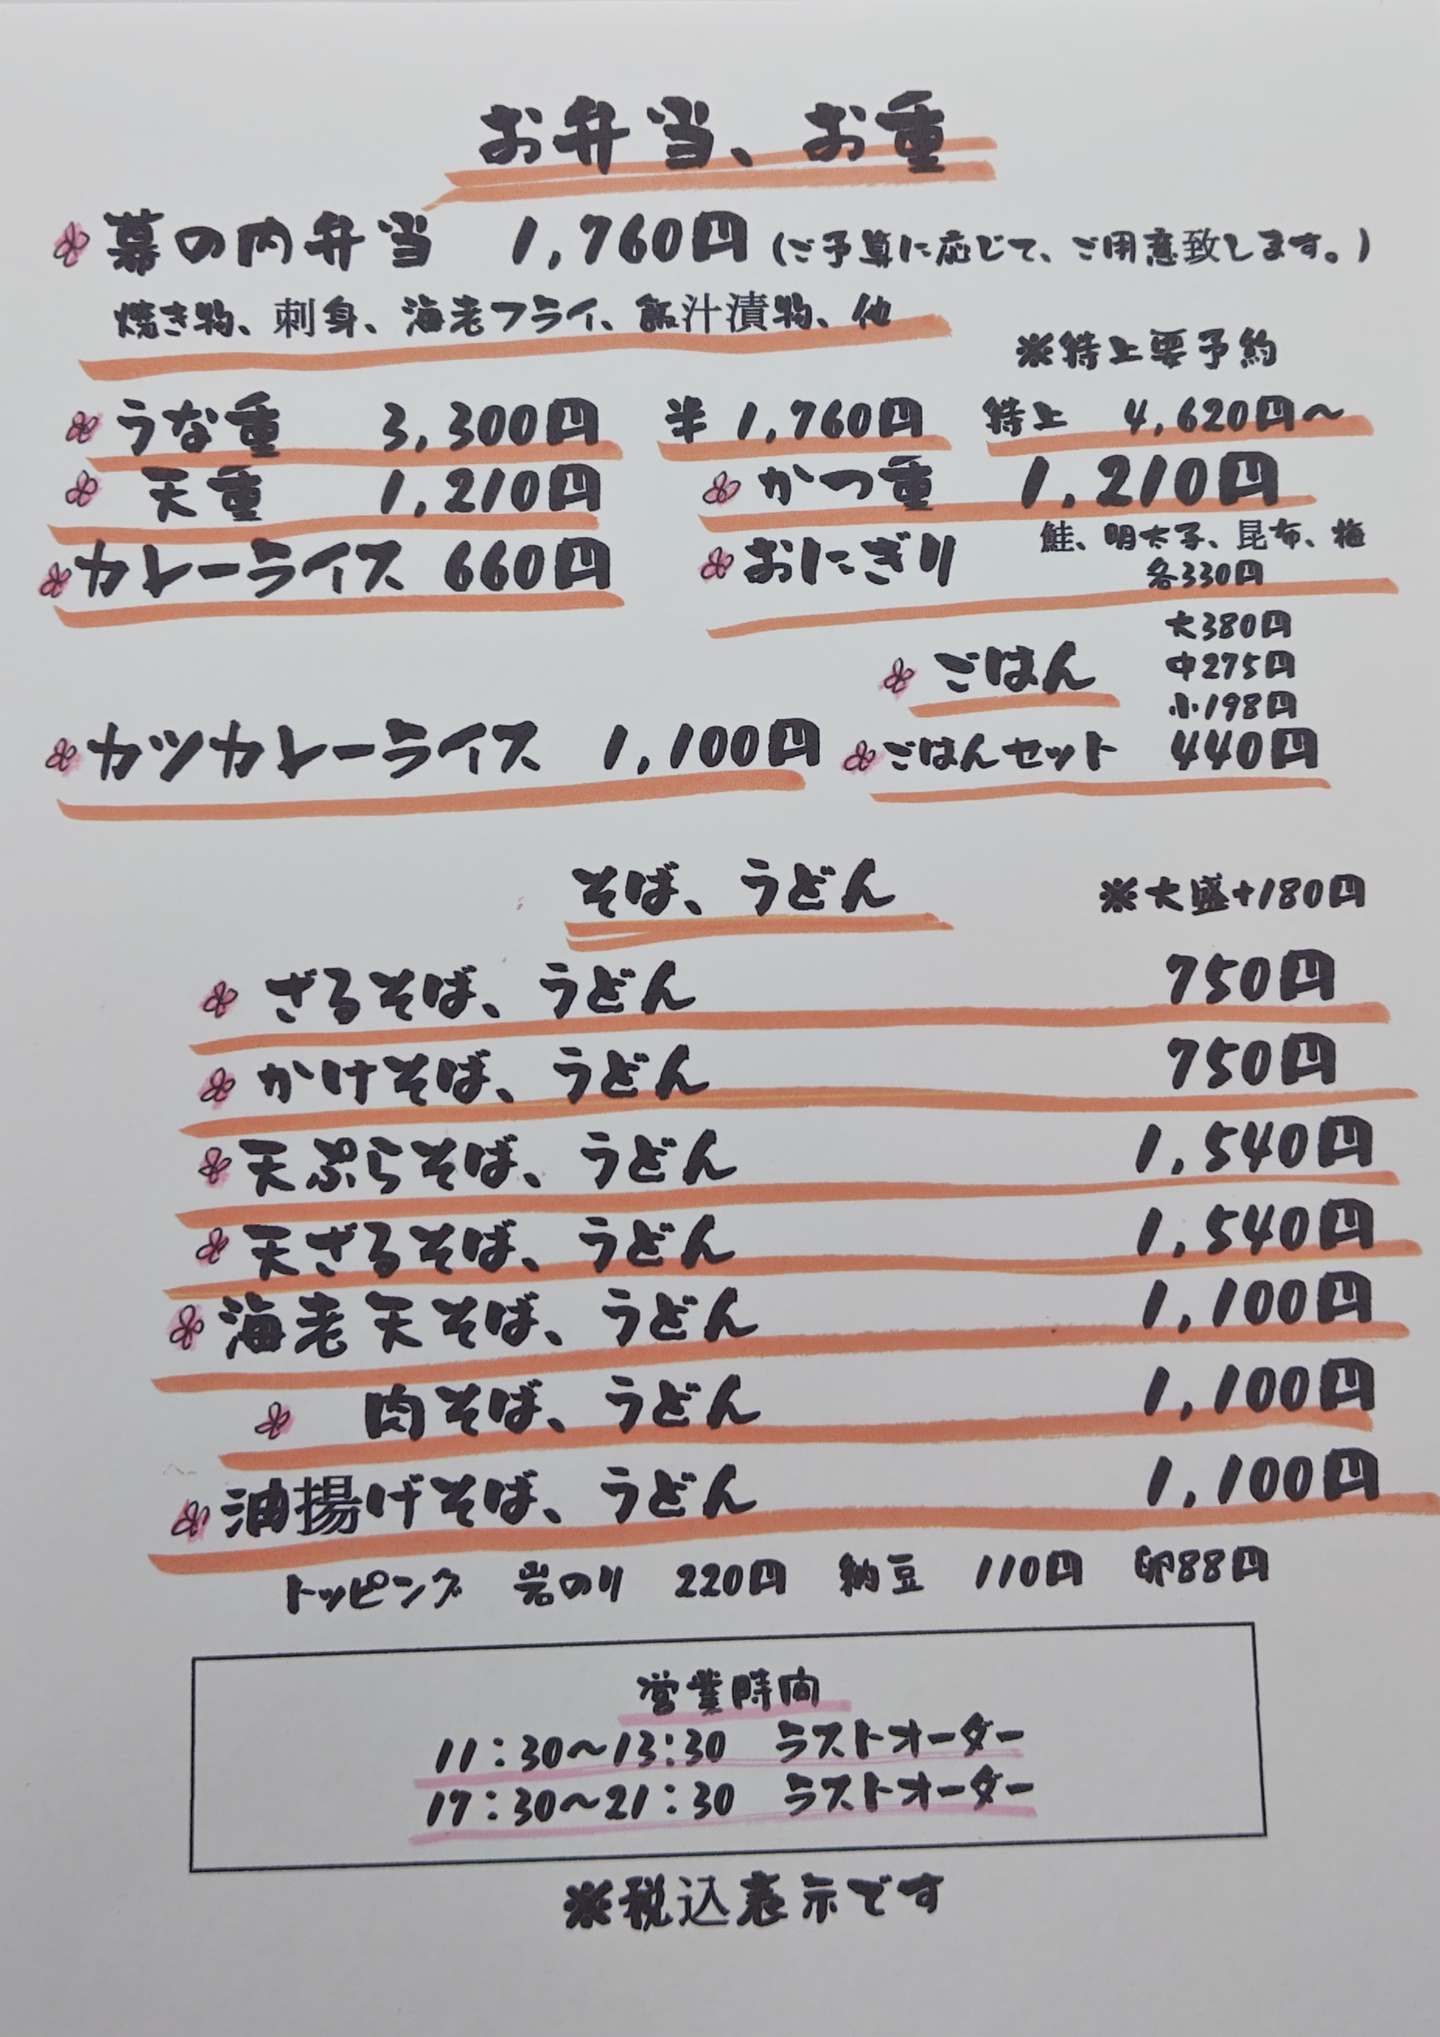 お弁当、お重
幕の内弁当 1,760円 (ご予算に応じて、ご用意致します。)
焼き物、刺身、海老フライ、飯汁漬物、他
※特上要予約
うな重 3,300円 半 1,760円 特上 4,620円～
天重 1,210円 かつ重 1,210円
カレーライス 660円 おにぎり 鮭、明太子、昆布、梅
各330円
大380円
ごはん 中275円
小198円
カツカレーライス 1,100円 ごはんセット 440円
そば、うどん ※大盛+180円
ざるそば、うどん 750円
かけそば、うどん 750円
天ぷらそば、うどん 1,540円
天ざるそば、うどん 1,540円
海老天そば、うどん 1,100円
肉そば、うどん 1,100円
油揚げそば、うどん 1,100円
トッピング 岩のり 220円 納豆 110円 卵88円
営業時間
11:30～13:30 ラストオーダー
17:30～21:30 ラストオーダー
※税込表示です